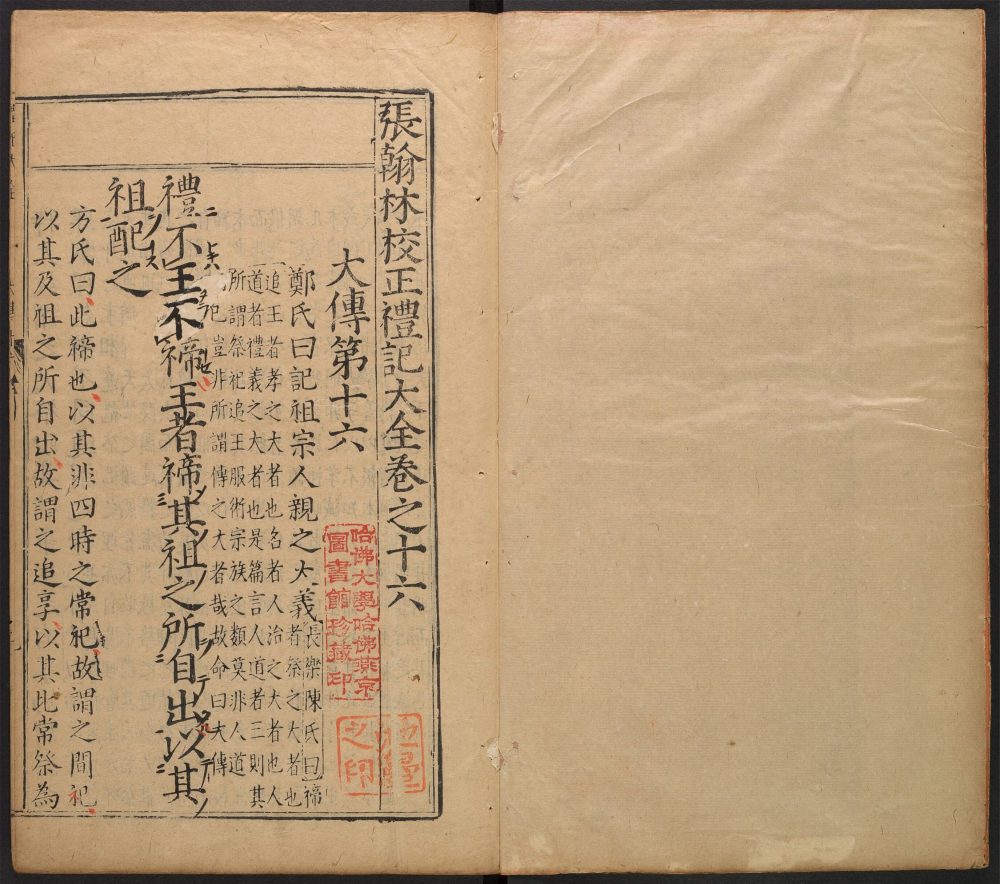 張翰林校正禮記大全卷之十六
大傳第十六
鄭氏曰記祖宗人親之大義長樂陳氏曰禘
者祭之大者也
追王者孝之大者也名者人治之大者也人
道者禮義之大者也是篇言人道者三則其
所謂祭祀追王服術宗族之類莫非人道
也豈非所謂傳之大者哉故命曰大傳
禮不王不禘王者禘其祖之所自出以其
祖配之
方氏曰此禘也以其非四時之常祀故謂之間祀
以其及祖之所自出故謂之追享以其比常祭為
哈佛大學哈佛燕京
圖書館珍藏印
之印